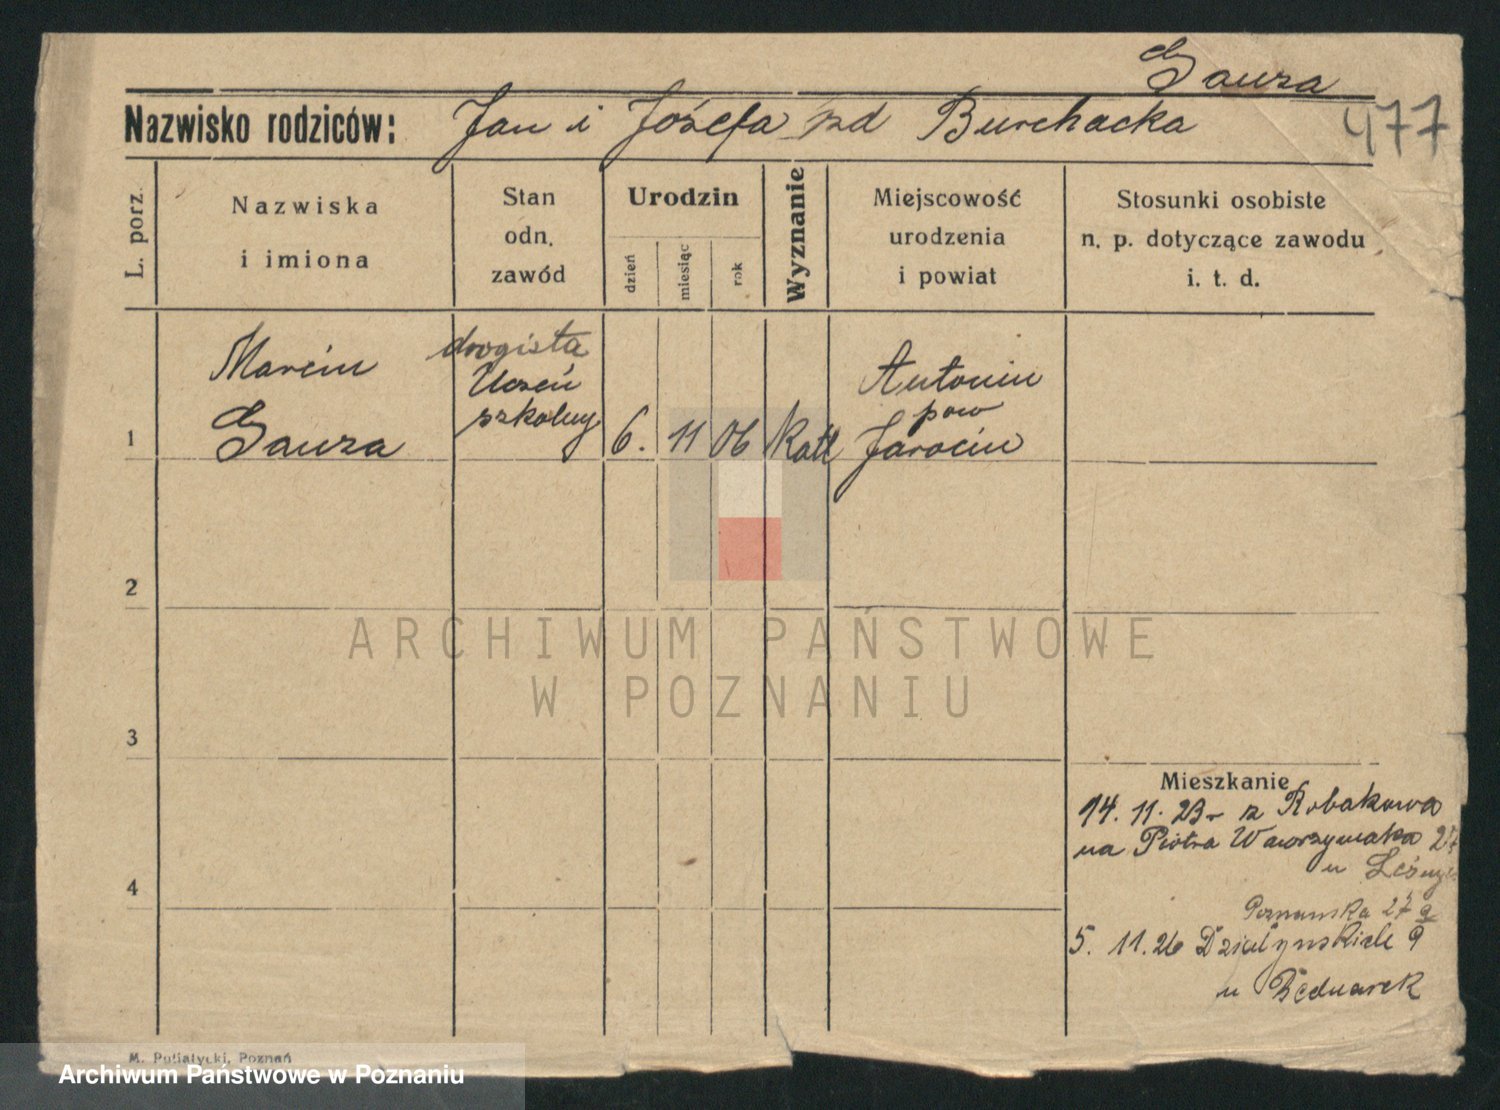 Gauza
Nazwisko rodziców: Jan i Józefa zd Burchacka
477
L. porz.
Nazwiska
i imiona
Stan
odn.
zawód
Urodzin
dzień
miesiąc
rok
Wyznanie
Miejscowość
urodzenia
i powiat
Stosunki osobiste
n. p. dotyczące zawodu
i. t. d.
1
Marcin
Gauza
drogista
Uczeń
szkolny
6. 11 06 Katl
Antonin
pow
Jarocin
2
ARCHIWUM PAŃSTWOWE
W POZNANIU
3
Mieszkanie
14. 11. 23 z Robakowa
na Piotra Wawrzyniaka 27
u
4
Poznańska 27
5. 11. 26 Działyńskich 9
u Bednarek
M. Putiatycki, Poznań
Archiwum Państwowe w Poznaniu